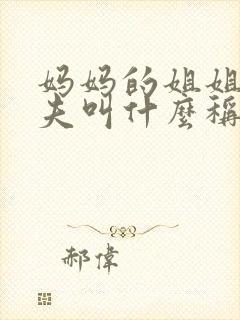 妈妈的姐姐
夫叫什麼稱
郝偉